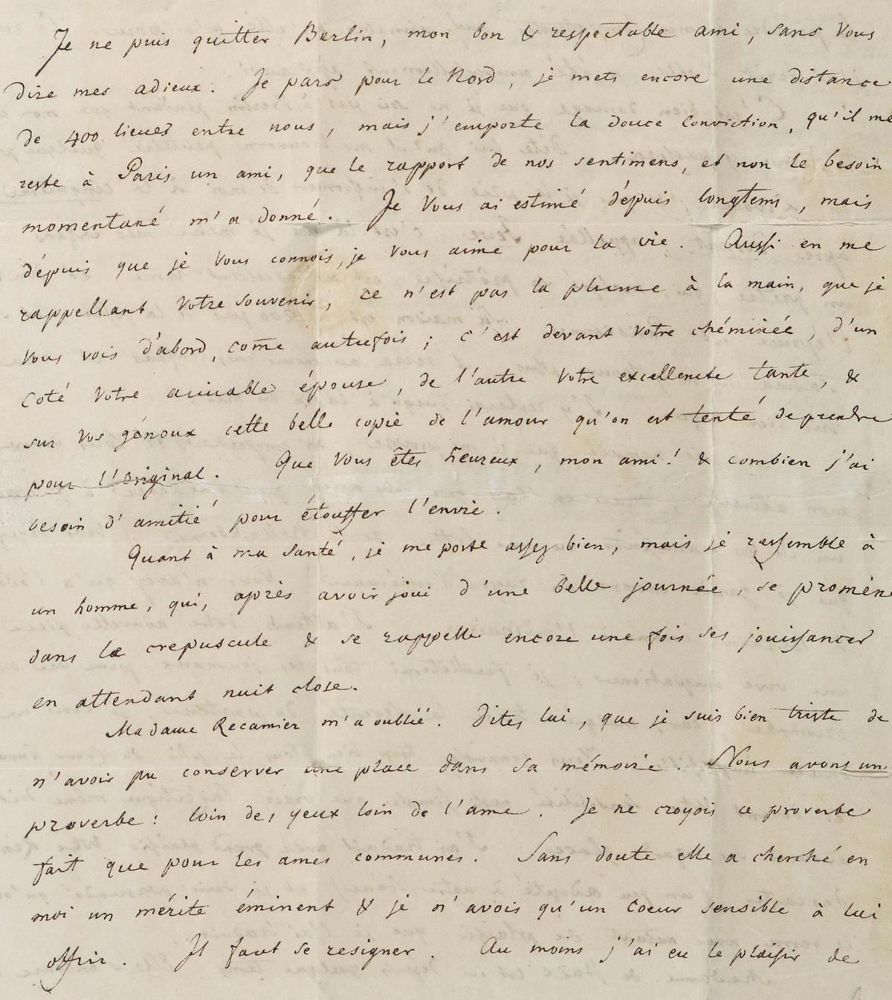 Je ne puis quitter Berlin, mon bon & respectable ami, sans Vous
dire mes adieux. Je pars pour le Nord, je mets encore une distance
de 400 lieues entre nous, mais j'emporte la douce conviction, qu'il me
reste à Paris un ami, que le rapport de nos sentimens, et non le besoin
momentané m'a donné. Je Vous ai estimé dépuis longtems, mais
dépuis que je Vous connois, je Vous aime pour la vie. Aussi en me
rappellant Votre souvenir, ce n'est pas la plume à la main, que je
Vous vois d'abord, come autrefois; c'est devant Votre chéminée, d'un
coté Votre aimable épouse, de l'autre Votre excellente tante, &
sur Vos génoux cette belle copie de l'amour qu'on est tenté de prendre
pour l'Original. Que Vous êtes heureux, mon ami! & combien j'ai
besoin d'amitié pour étouffer l'envie.
Quant à ma santé, je me porte assez bien, mais je ressemble à
un homme, qui, après avoir joui d'une belle journée, se promène
dans le crepuscule & se rappelle encore une fois ses jouissances
en attendant nuit close.
Madame Recamier m'a oublié. Dites lui, que je suis bien triste de
n'avoir pu conserver une place dans sa mémoire. Nous avons un
proverbe: loin des yeux loin de l'ame. Je ne croyois ce proverbe
fait que pour les ames communes. Sans doute elle a cherché en
moi un mérite éminent & je n'avois qu'un coeur sensible à lui
offrir. Il faut se resigner. Au moins j'ai eu le plaisir de